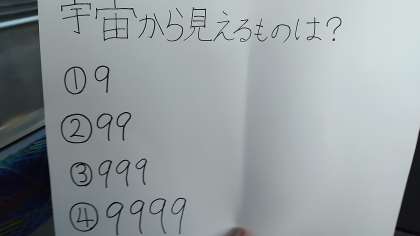 宇宙から見えるものは?
①9
②99
③999
④9999